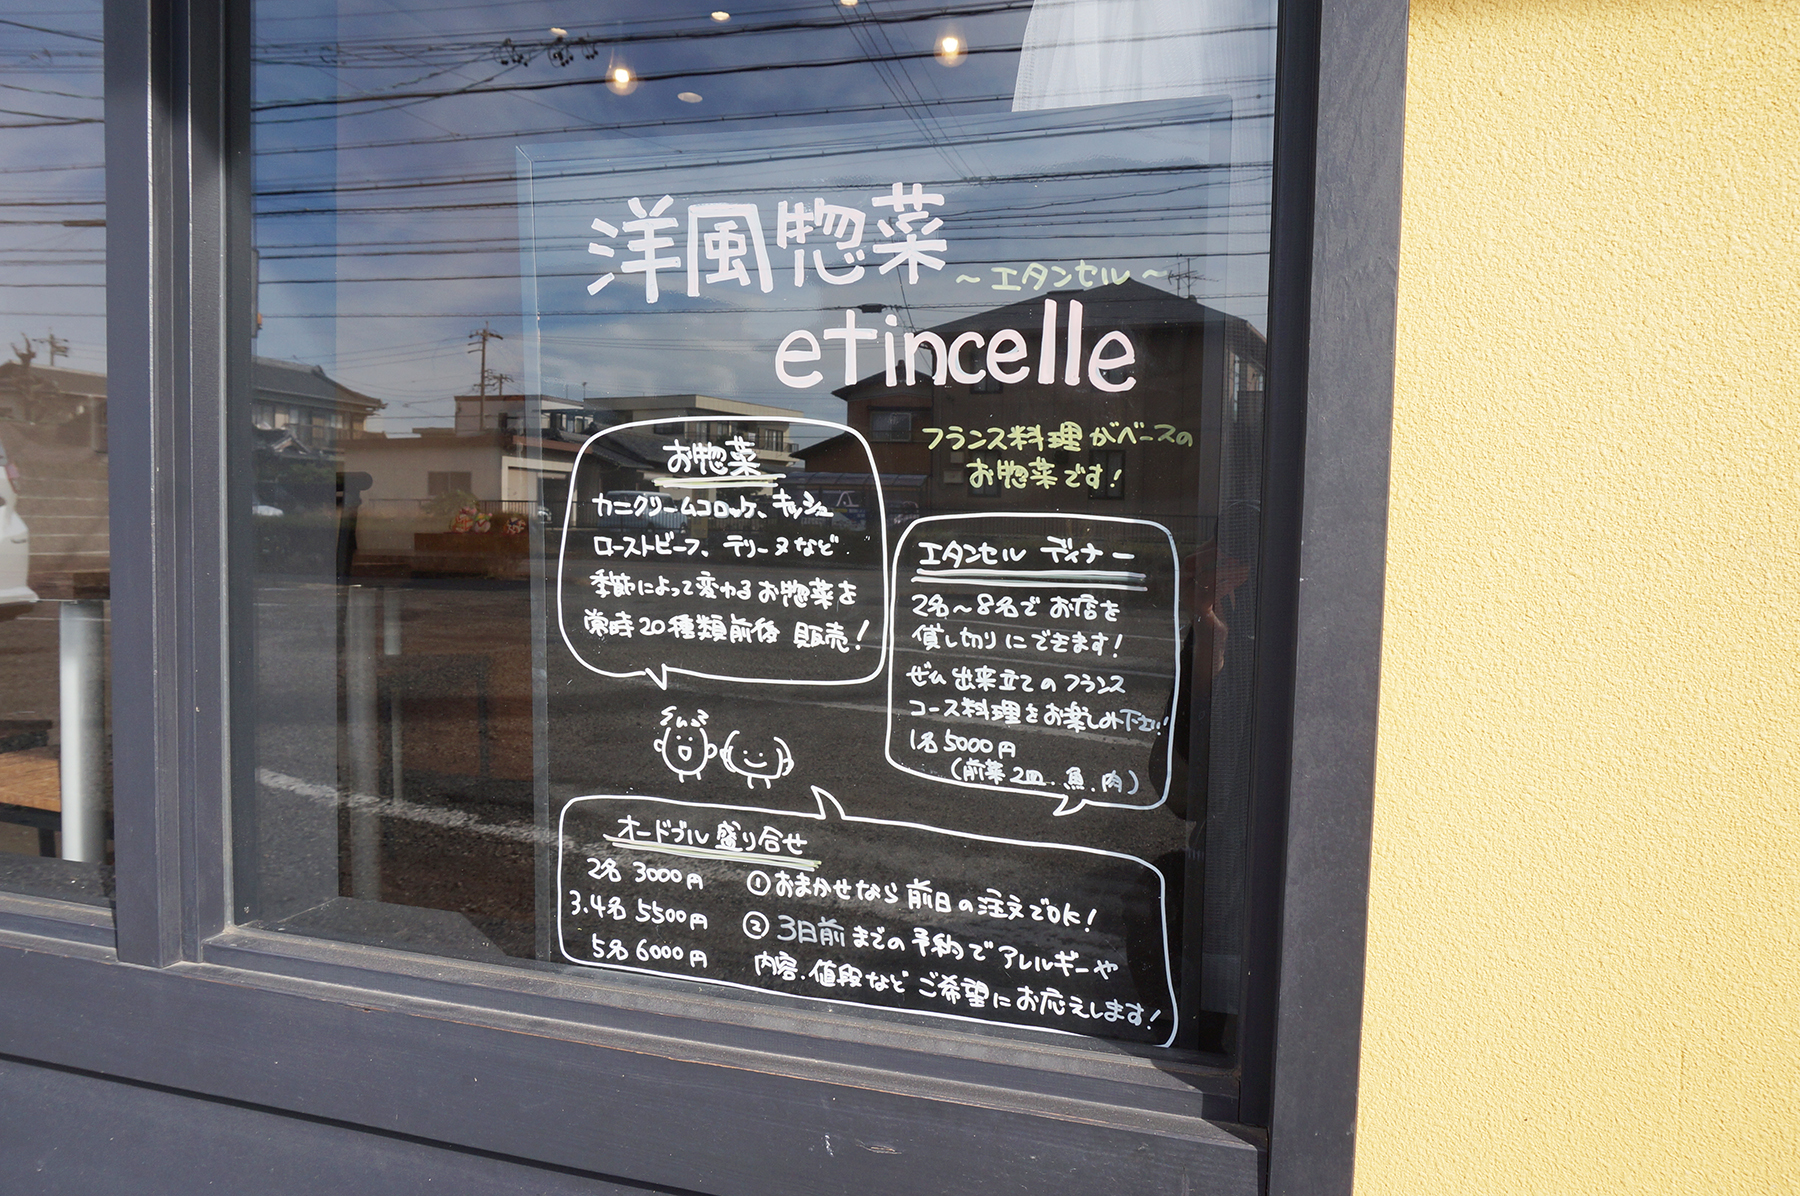 洋風惣菜
～エタンセル～
etincelle
フランス料理がベースの
お惣菜です!
お惣菜
カニクリームコロッケ、キッシュ
ローストビーフ、テリーヌなど
季節によって変わるお惣菜を
常時20種類前後 販売!
エタンセル ディナー
2名～8名でお店を
貸し切りにできます!
ぜひ出来立てのフランス
コース料理をお楽しみ下さい!
1名5000円
(前菜2皿.魚.肉)
オードブル盛り合せ
2名 3000円
3.4名 5500円
5名 6000円
①おまかせなら前日の注文でOK!
②3日前までの予約でアレルギーや
内容.値段などご希望にお応えします!